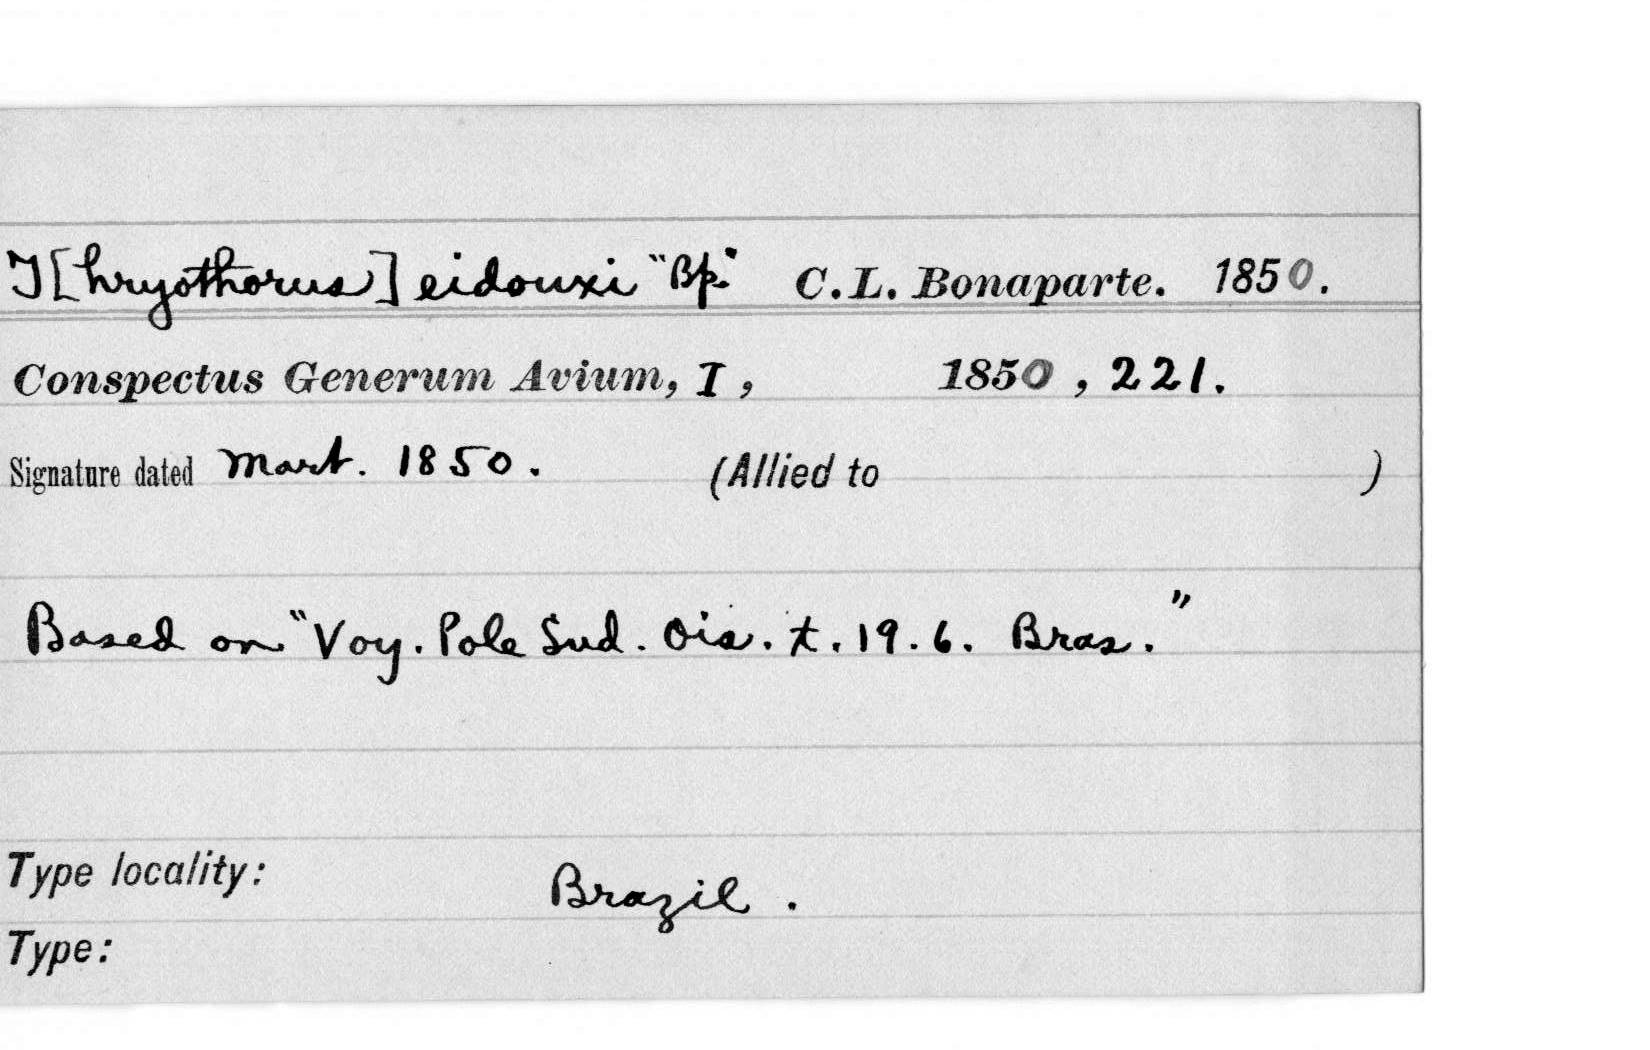 T[hryothorus] eidouxi "Bp." C.L. Bonaparte. 1850.
Conspectus Generum Avium, I, 1850, 221.
Signature dated Mart. 1850. (Allied to )
Based on "Voy. Pole Sud. Ois. t. 19. 6. Bras."
Type locality: Brazil.
Type: